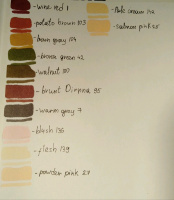 - wine red 1
- potato brown 103
- brown grey 104
- bronze green 42
- walnut 20
- brunt Dienna 95
- warm grey 7
- blush 136
- flesh 139
- powder pink 27
- Pale cream 142
- salmon pink 25